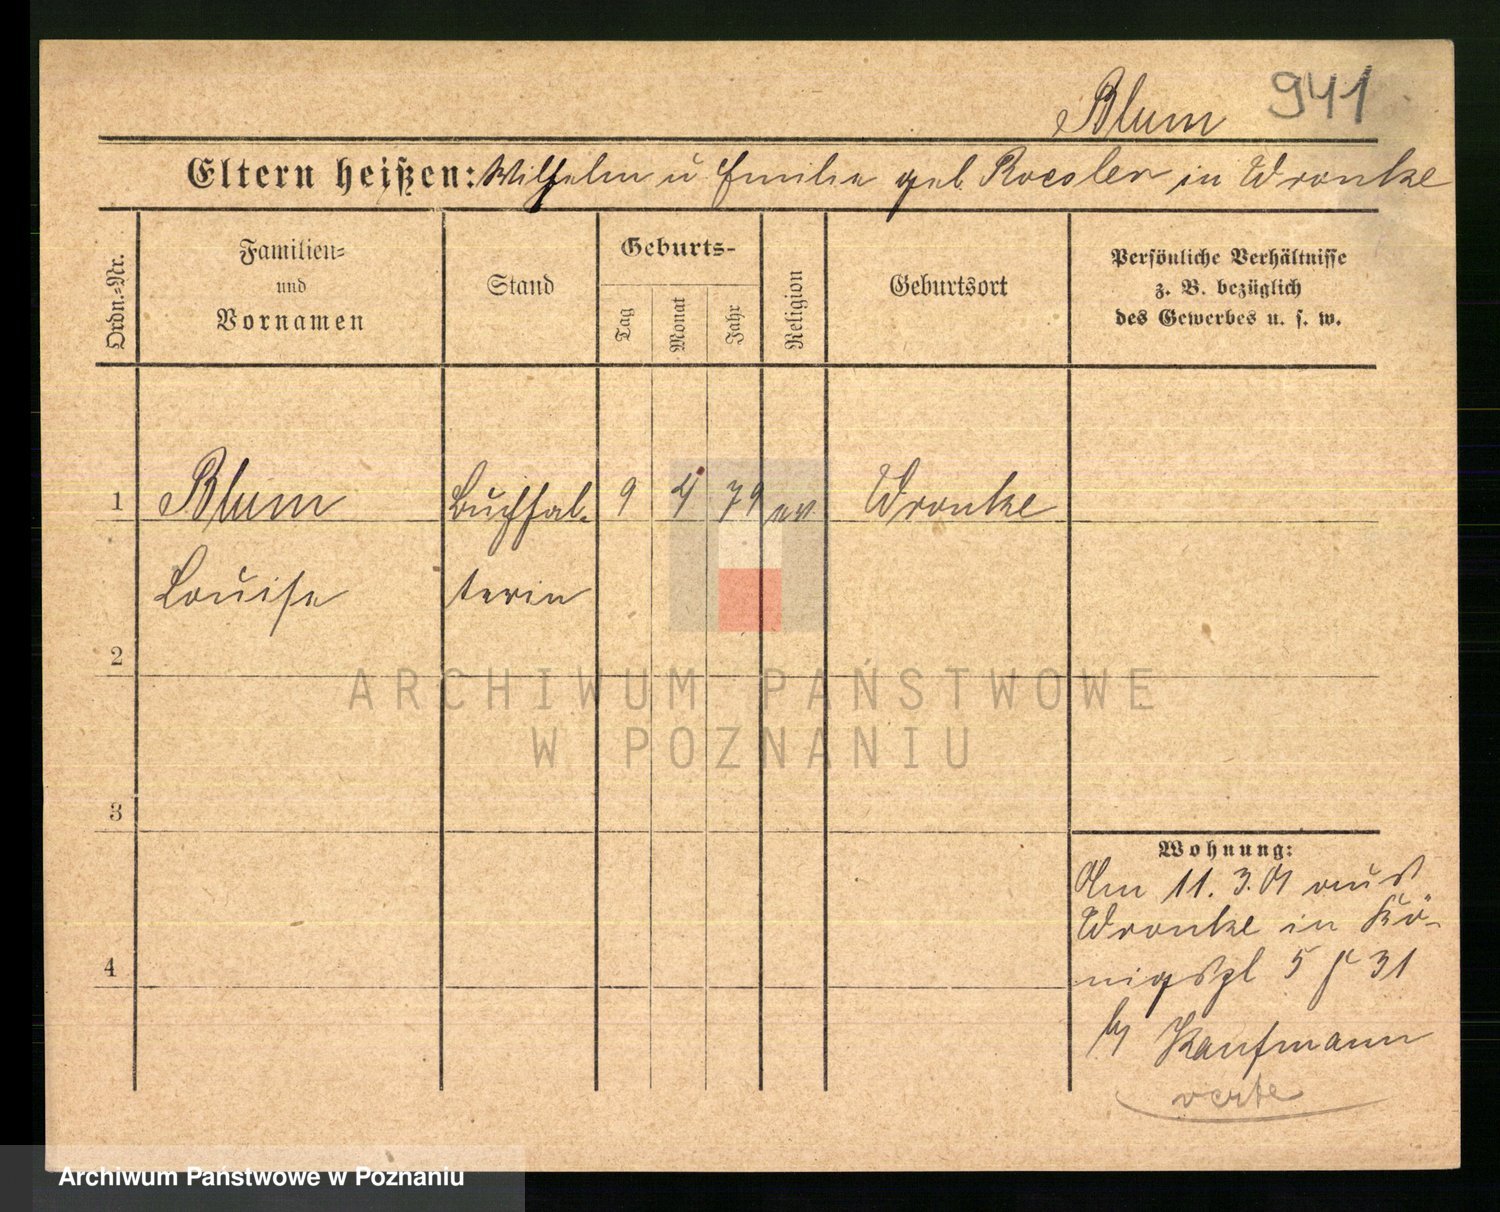 Blum 941
Eltern heißen: Wilhelm u Emilie geb. Roesler in Wronke
Ordn.-Nr.
Familien-
und
Vornamen
Stand
Geburts-
Tag
Monat
Jahr
Religion
Geburtsort
Persönliche Verhältnisse
z. B. bezüglich
des Gewerbes u. s. w.
1 Blum Buchhal- 9 4 79 ev Wronke
Louise terin
2
3
4
Wohnung:
Am 11. 3. 01 aus
Wronke in Kö-
nigspl 5 31
b/ Kaufmann
verte
ARCHIWUM PAŃSTWOWE
W POZNANIU
Archiwum Państwowe w Poznaniu